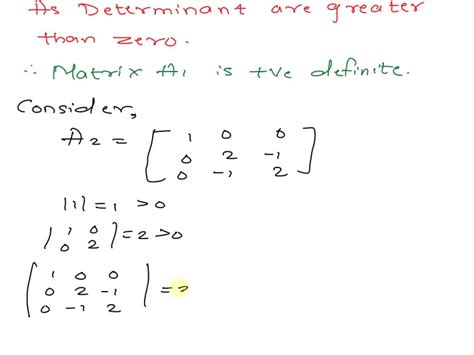 As Determinant are greater
than zero.
∴ Matrix A1 is +ve definite.
Consider,
A2 = [ 1 0 0
0 2 -1
0 -1 2 ]
|1| = 1 > 0
| 1 0
0 2 | = 2 > 0
| 1 0 0
0 2 -1
0 -1 2 | =